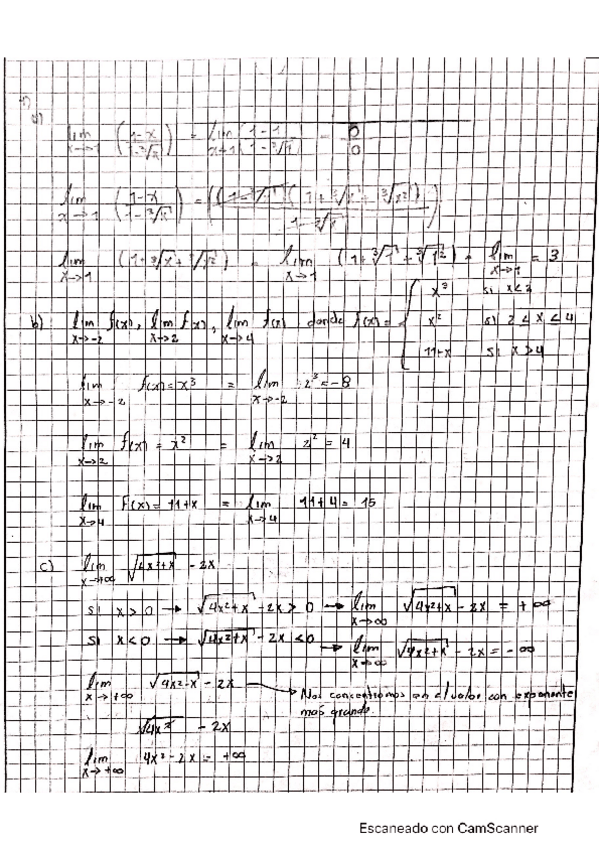 a)
lim x→1 (1-x / 1-∛x) = lim x→1 (1-1 / 1-∛1) = 0/0
lim x→1 (1-x / 1-∛x) = ((1-∛x)(1+∛x+∛x²) / 1-∛x)
lim x→1 (1+∛x+∛x²) = lim x→1 (1+∛1+∛1²) = lim x→1 = 3
b) lim x→-2 f(x), lim x→2 f(x), lim x→4 f(x) donde f(x)= { x³ si x<2
x² si 2≤x≤4
11+x si x>4
lim x→-2 f(x)=x³ = lim x→-2 2³=-8
lim x→2 f(x)=x² = lim x→2 2²=4
lim x→4 f(x)=11+x = lim x→4 11+4=15
c) lim x→+∞ √4x²+x - 2x
si x>0 → √4x²+x - 2x>0 → lim x→∞ √4x²+x - 2x = +∞
si x<0 → √4x²+x - 2x<0 → lim x→∞ √4x²+x - 2x = -∞
lim x→+∞ √4x²-x - 2x → Nos concentramos en el valor con exponente
mas grande.
√4x² - 2x
lim x→+∞ 4x²-2x = +∞
Escaneado con CamScanner